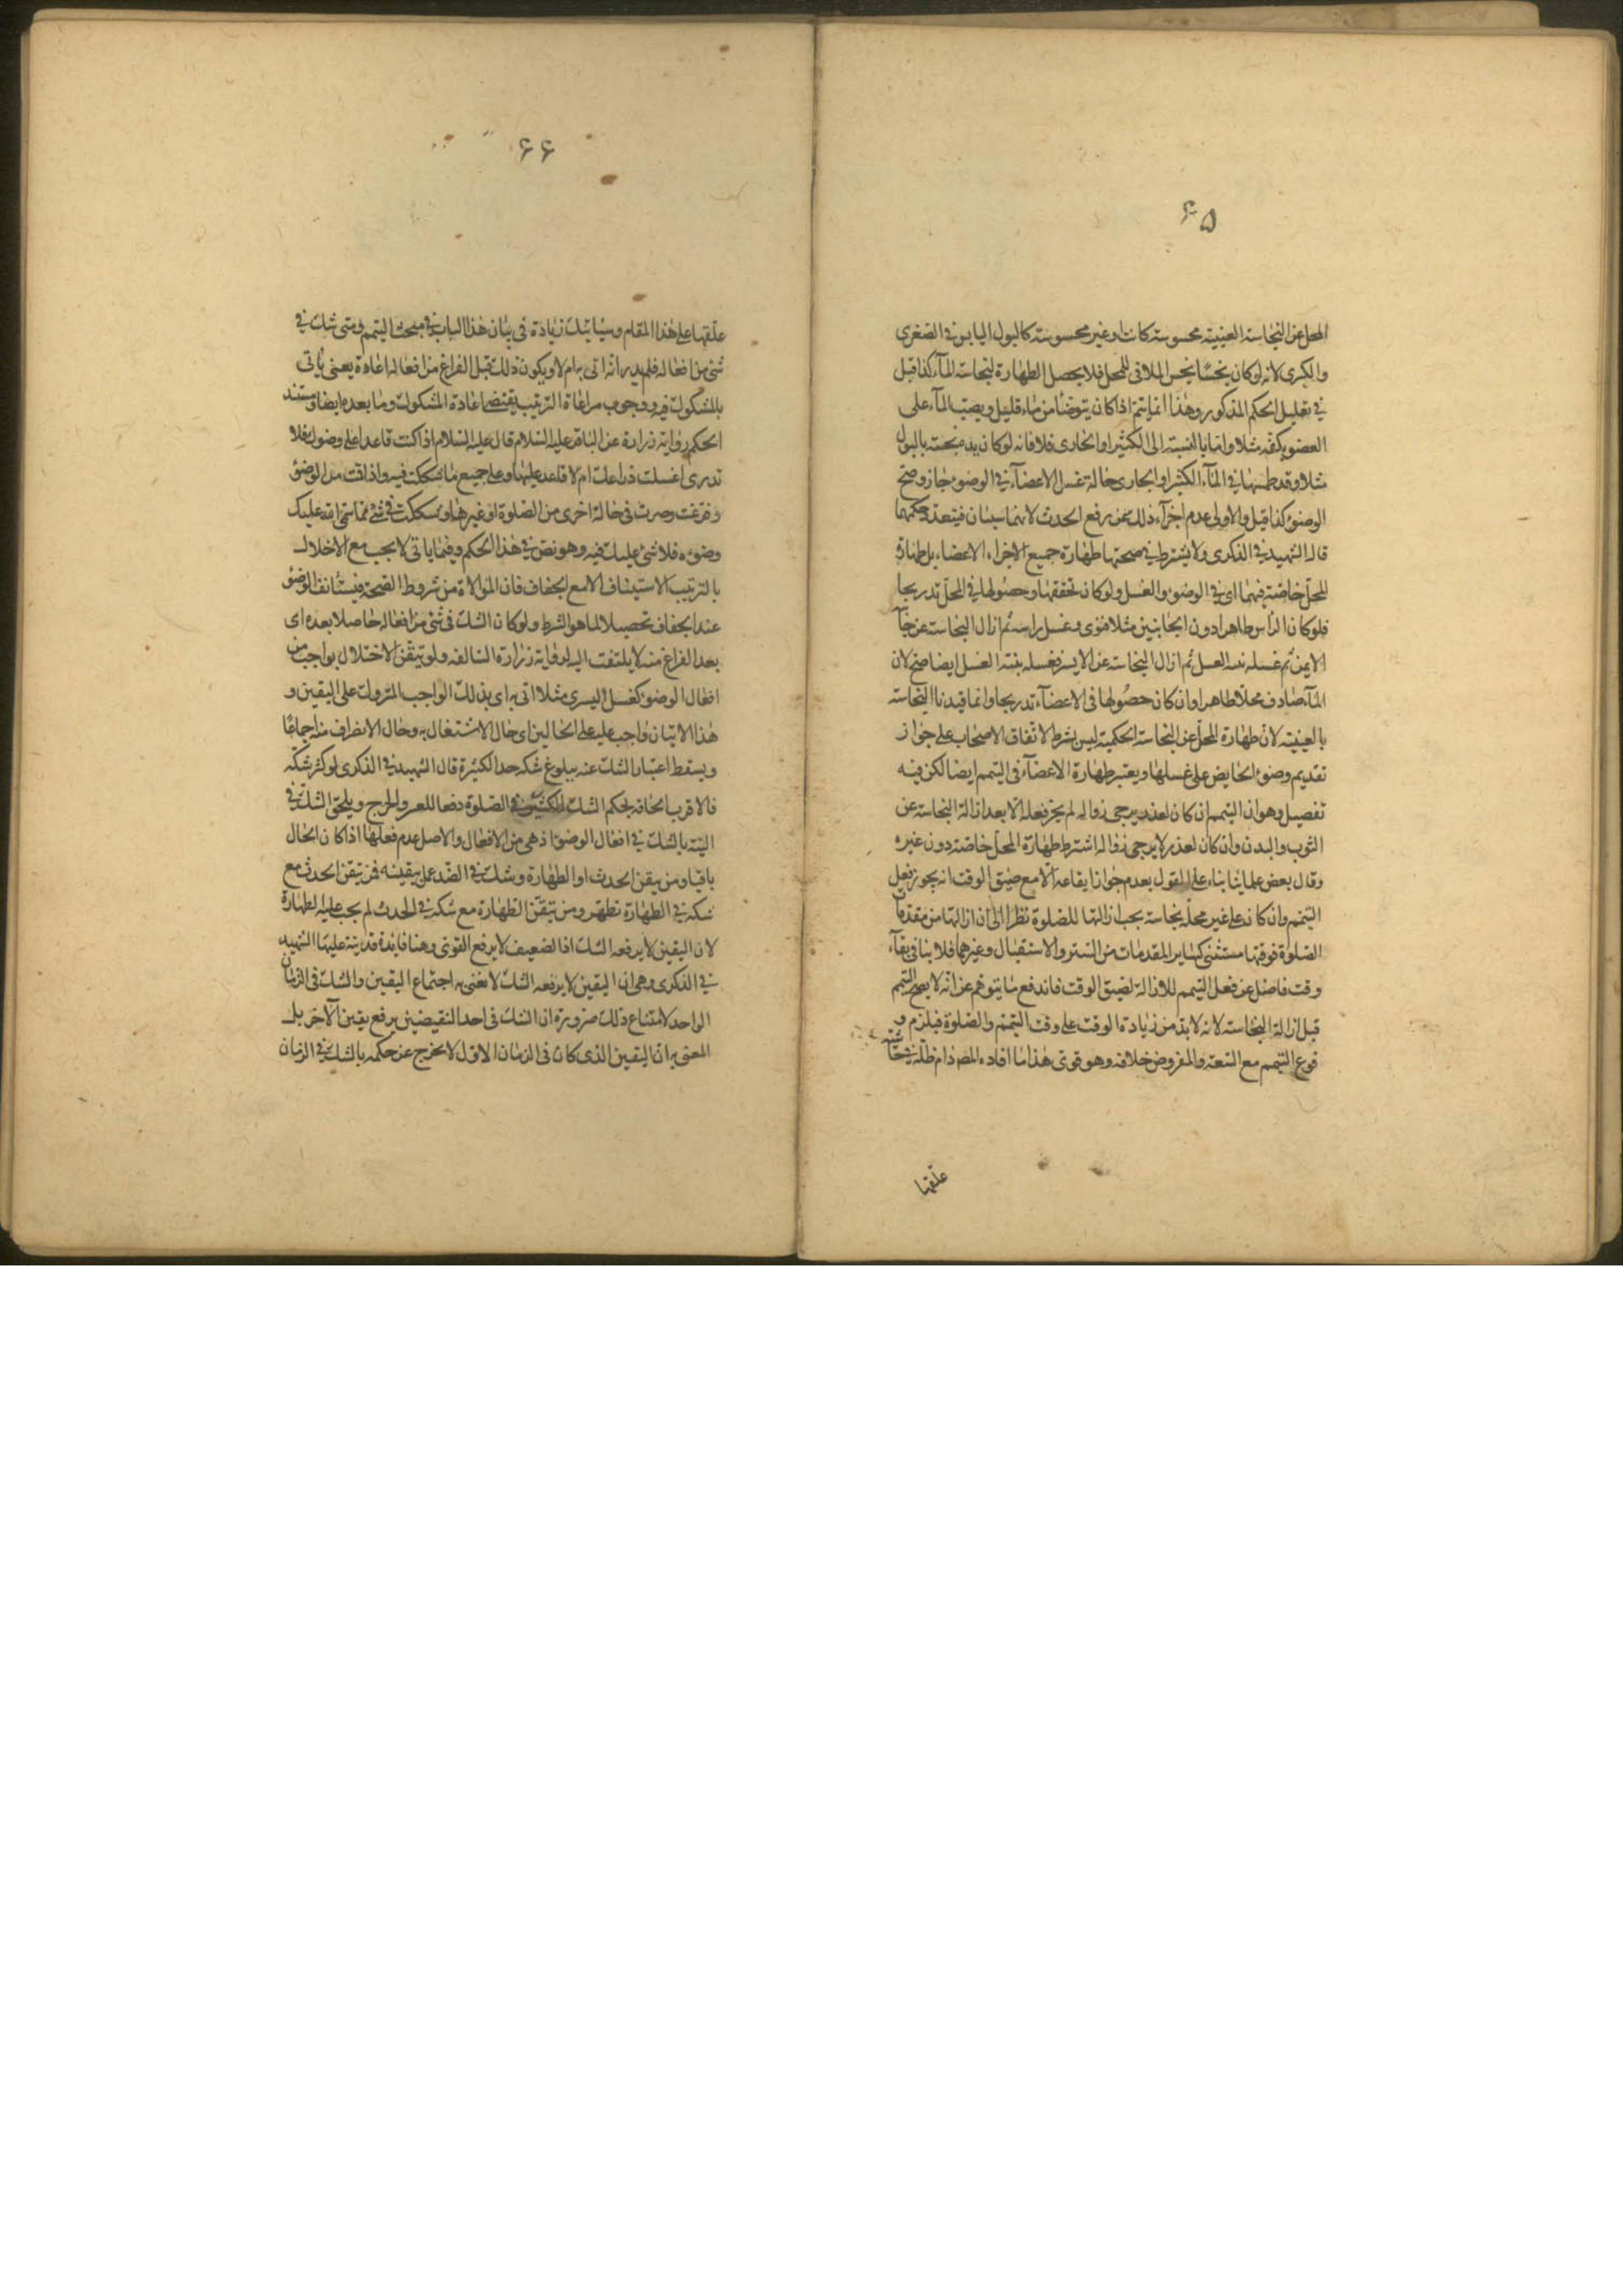 ۶۵
المحل عن النجاسة العينية محسوسة كانت او غير محسوسة كالبول اليابس في الصغرى
والكبرى لانه لو كان نجسًا نجس الملاقى للمحل فلا يحصل الطهارة لنجاسة المآء كذا قيل
في تعليل الحكم المذكور وهذا انما يتم اذا كان يتوضأ من مآء قليل ويصب المآء على
العضو بكفه مثلا واما بالنسبة الى الكثير او الجارى فلا فانه لو كان يده نجسة بالبول
مثلا وقد طمسها في المآء الكثير او الجارى حالة غسل الاعضآء في الوضوء جاز وصح
الوضوء كذا قيل والاولى عدم اجزآء ذلك عن رفع الحدث لانهما سببان فيتعدد حكمهما
قال الشهيد في الذكرى ولا يشترط في صحتها طهارة جميع الاجزاء الاعضاء بل طهارة
المحل خاصة فيهما اى في الوضوء والغسل ولو كان تحققها وحصولها في المحل تدريجا
فلو كان الرأس طاهرا دون الجانبين مثلا فنوى وغسل راسه ثم ازال النجاسة عن جانبه
الايمن ثم غسله الغسل ثم ازال النجاسة عن الايسر فغسله بنية الغسل ايضا صح لان
المآء صادف محلا طاهرا وان كان حصولها في الاعضآء تدريجا وانما قيدنا النجاسة
بالعينية لان طهارة المحل عن النجاسة الحكمية ليس بشرط لاتفاق الاصحاب على جواز
تقديم وضوء الحايض على غسلها ويعتبر طهارة الاعضآء في التيمم ايضا لكن فيه
تفصيل وهو ان التيمم ان كان لعذر يرجى زواله لم يجز فعله الا بعد ازالة النجاسة عن
الثوب والبدن وان كان لعذر لا يرجى زواله اشترط طهارة المحل خاصة دون غيره
وقال بعض علمائنا بناء على القول بعدم جواز ايقاعه الا مع ضيق الوقت انه يجوز فعل
التيمم وان كان على غير محله نجاسة يجب ازالتها للصلوة نظرا الى ان ازالتها من مقدمات
الصلوة فوقتها مستثنى كساير المقدمات من الستر والاستقبال وغيرهما فلا ينافى بقآء
وقت فاضل عن فعل التيمم للازالة لضيق الوقت فاندفع ما يتوهم عن انه لا يصح التيمم
قبل ازالة النجاسة لانه لا بد من زيادة الوقت على وقت التيمم والصلوة فيلزم و
قوع التيمم مع السعة والمفروض خلافه وهو قوى هذا ما افاده المص دام ظله في حاشية
علقها
۶۶
علقها على هذا المقام وسياتيك زيادة في بيان هذا الباب في مبحث التيمم ومتى شك في
شئ من افعاله فلم يدر انه اتى به ام لا ويكون ذلك قبل الفراغ من افعاله اعاده يعنى ياتى
بالمشكوك فيه ووجوب مراعاة الترتيب يقتضى اعادة المشكوك وما بعده ايضا ومستند
الحكم رواية زرارة عن الباقر عليه السلام قال عليه السلام اذا كنت قاعدا على وضوئك فلا
تدرى اغسلت ذراعك ام لا فاعد عليها وعلى جميع ما شككت فيه واذا قمت من الوضوء
وفرغت وصرت في حالة اخرى من الصلوة او غيرها وشككت في شئ مما سمى الله عليك
وضوءه فلا شئ عليك فيه وهو نص في هذا الحكم وفيما ياتى لا يجب مع الاخلال
بالترتيب الاستيناف الا مع الجفاف فان الموالاة من شروط الصحة فيستانف الوضوء
عند الجفاف تحصيلا لما هو الشرط ولو كان الشك في شئ من افعاله حاصلا بعده اى
بعد الفراغ منه لا يلتفت اليه لرواية زرارة السالفة ولو تيقن الاختلال بواجب من
افعال الوضوء كغسل اليسرى مثلا اتى به اى بذلك الواجب المتروك على اليقين و
هذا الاتيان واجب عليه على الحالين اى حال الاشتغال به وحال الانصراف منه اجماعًا
ويسقط اعتبار الشك عنه ببلوغ شكه حد الكثرة قال الشهيد في الذكرى لو كثر شكه
فالاقرب الحاقه بحكم الشك الكثير في الصلوة دفعا للعسر والحرج ويلحق الشك في
النية بالشك في افعال الوضوء اذ هى من الافعال والاصل عدم فعلها اذا كان الحال
باقيا ومن تيقن الحدث او الطهارة وشك في الضد عمل بيقينه فمن تيقن الحدث مع
شكه في الطهارة تطهر ومن تيقن الطهارة مع شكه في الحدث لم يجب عليه الطهارة
لان اليقين لا يرفعه الشك اذ الضعيف لا يرفع القوى وهنا فائدة قد نبه عليها الشهيد
في الذكرى وهى ان اليقين لا يرفعه الشك لا نعنى به اجتماع اليقين والشك في الزمان
الواحد لامتناع ذلك ضرورة ان الشك في احد النقيضين يرفع يقين الآخر بل
المعنى به ان اليقين الذى كان في الزمان الاول لا يخرج عن حكمه بالشك في الزمان